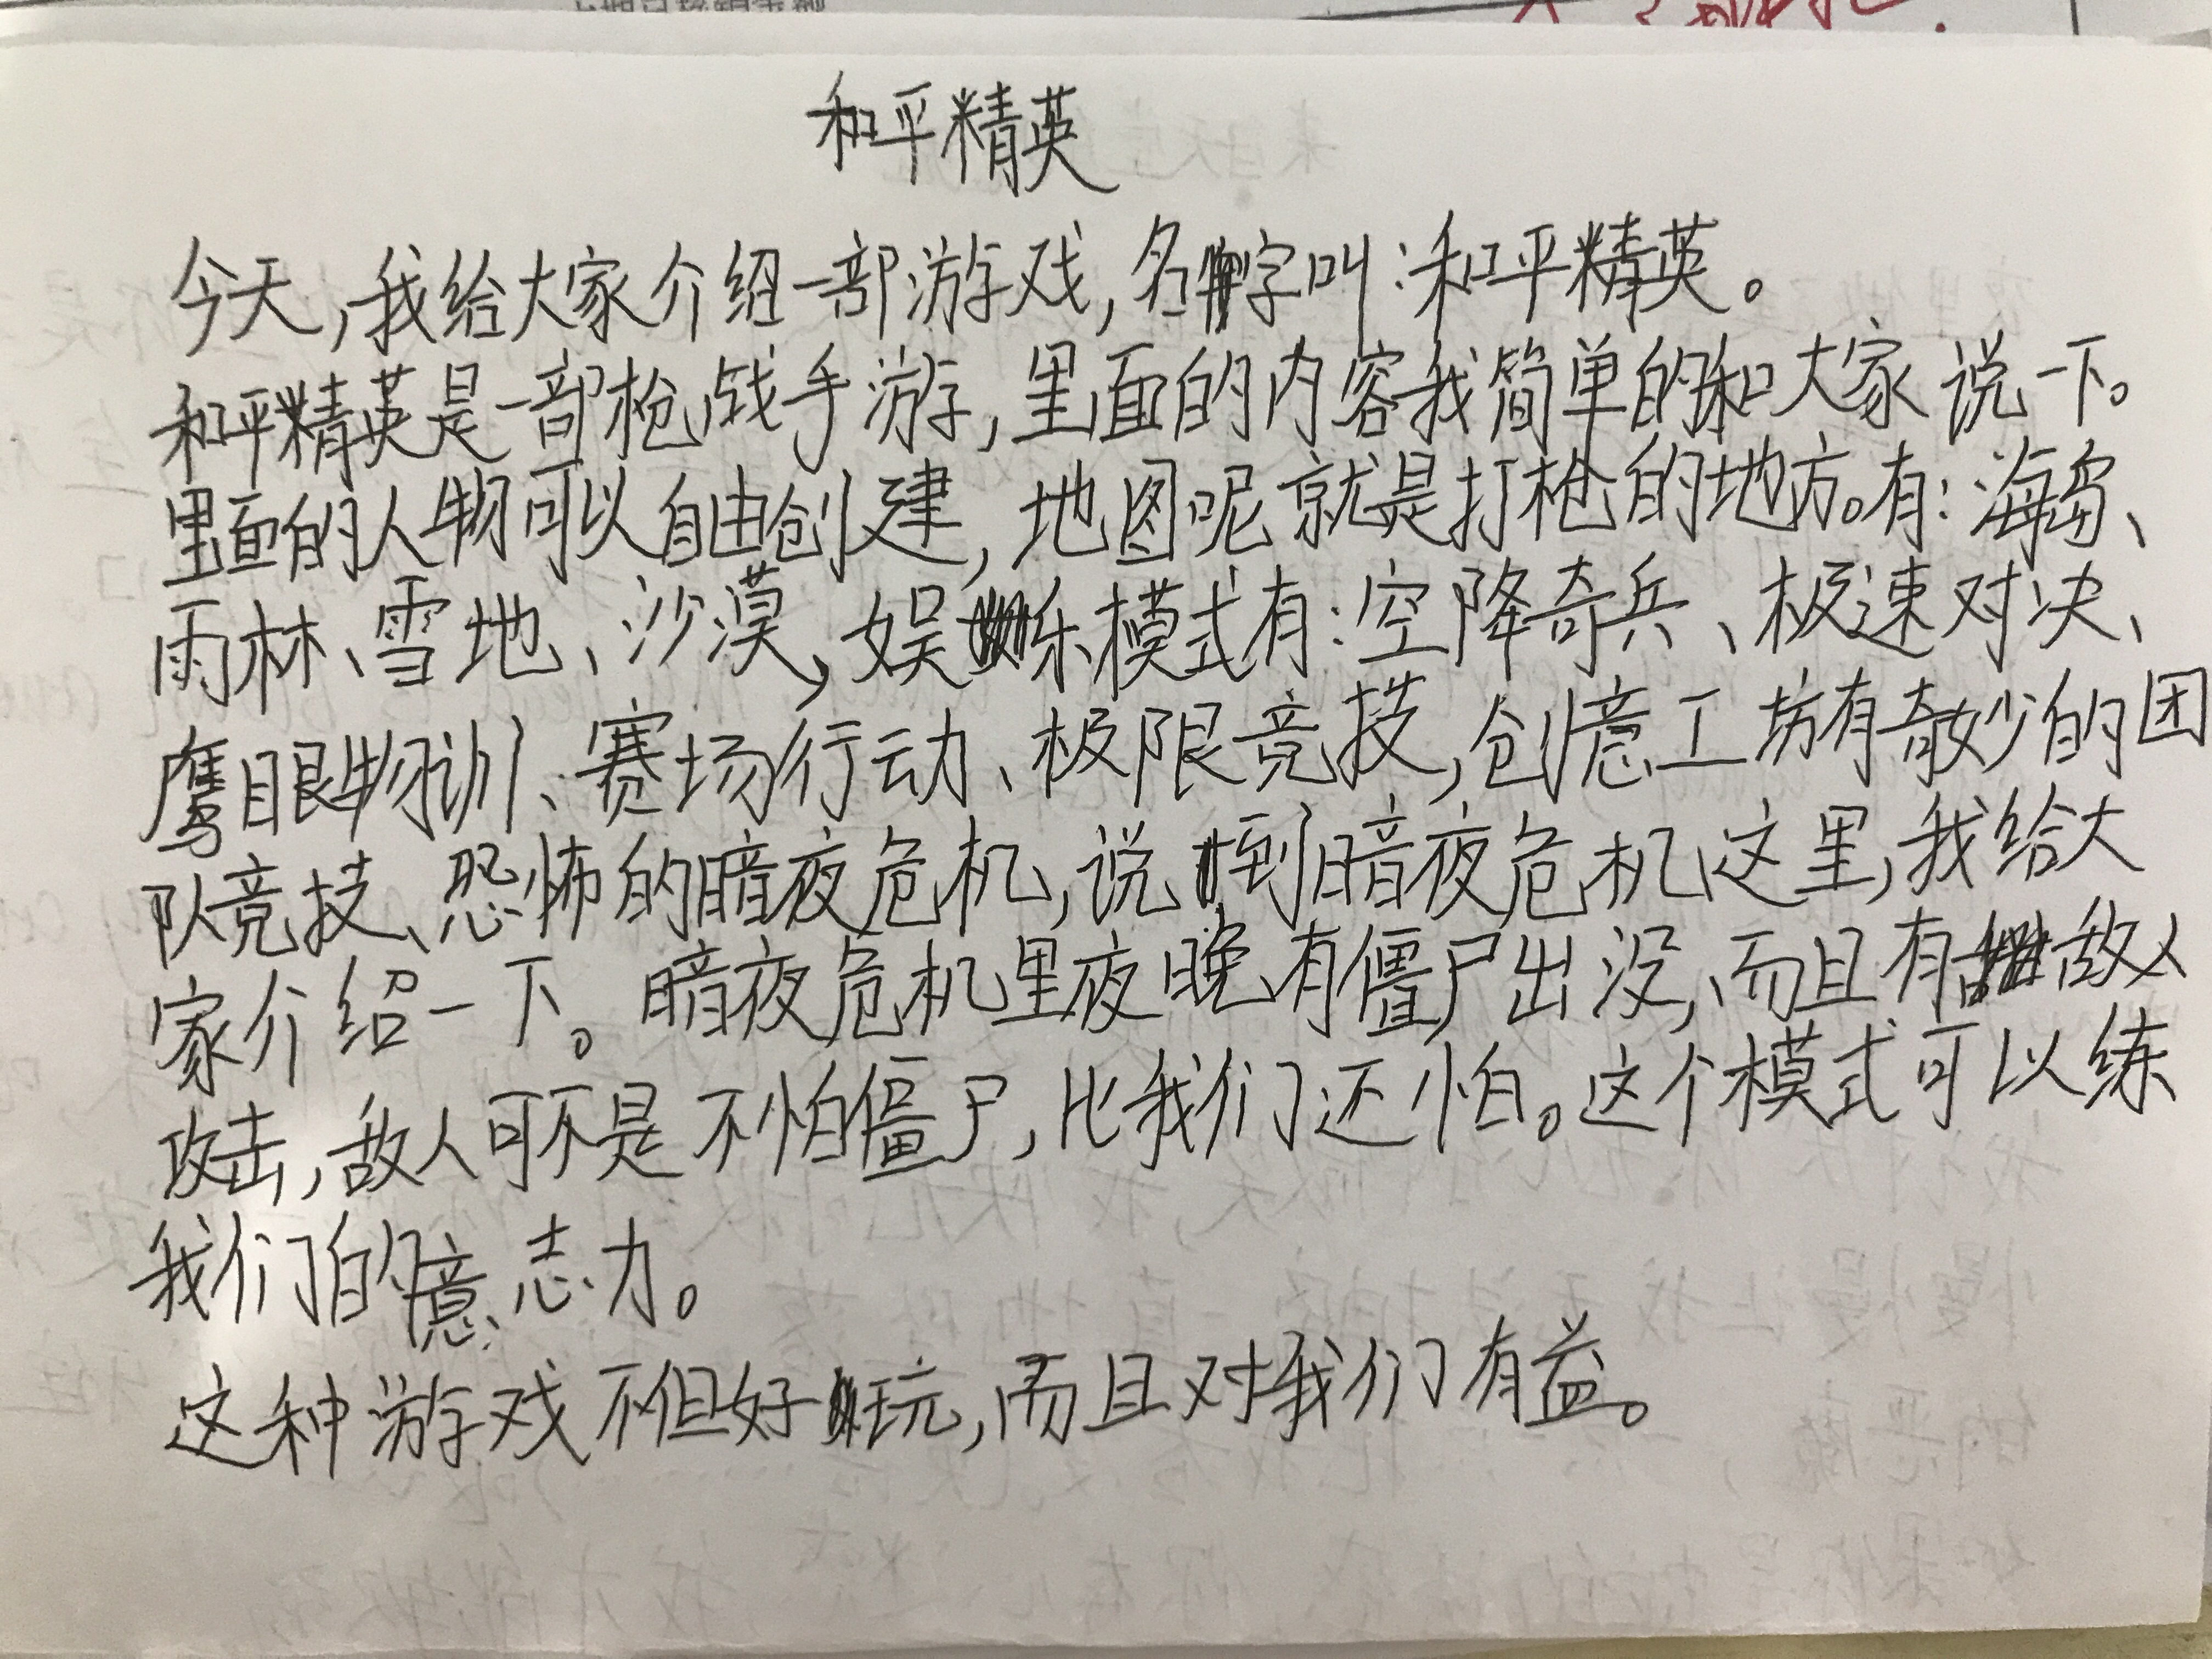 和平精英
今天,我给大家介绍一部游戏,名字叫:和平精英。
和平精英是一部枪战手游,里面的内容我简单的和大家说一下。
里面的人物可以自由创建,地图呢就是打枪的地方。有:海岛、
雨林、雪地、沙漠,娱乐模式有:空降奇兵、极速对决、
鹰眼物训、赛场行动、极限竞技,创意工坊有奇妙的团
队竞技、恐怖的暗夜危机,说到暗夜危机这里,我给大
家介绍一下。暗夜危机里夜晚有僵尸出没,而且有敌人
攻击,敌人可不是不怕僵尸,比我们还怕。这个模式可以练
我们的意志力。
这种游戏不但好玩,而且对我们有益。